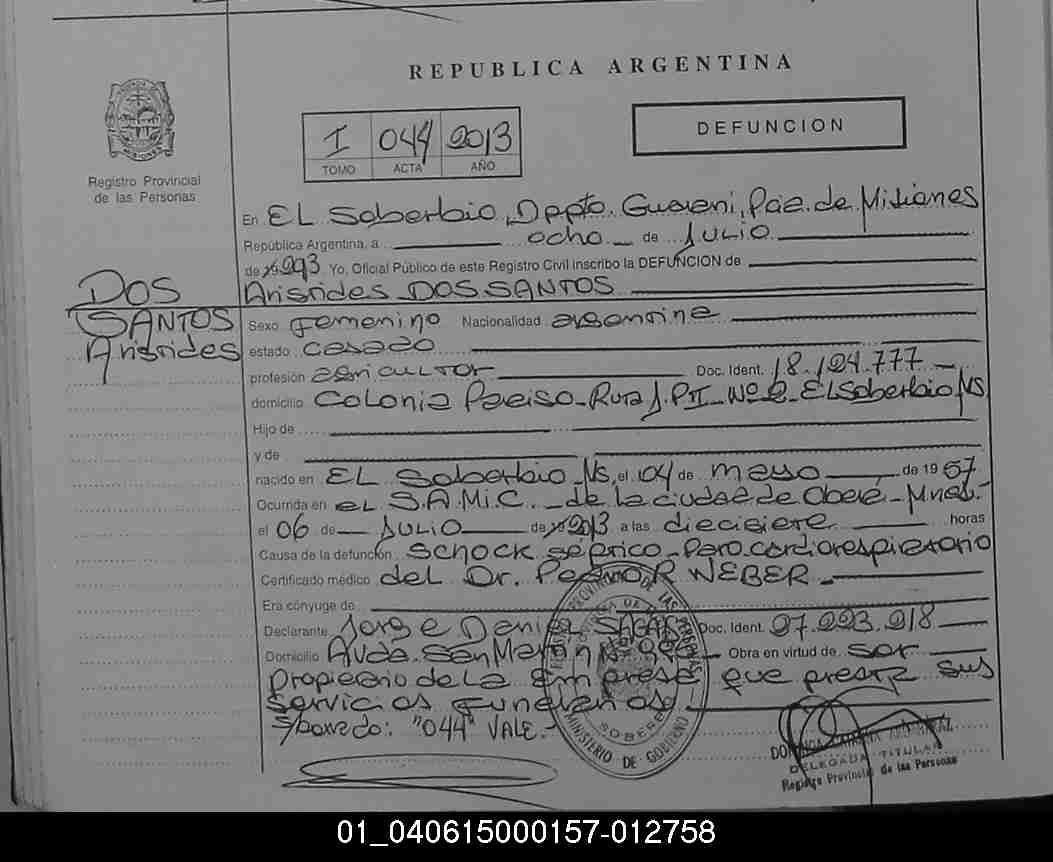 REPUBLICA ARGENTINA
Registro Provincial
de las Personas
I 044 2013
TOMO ACTA AÑO
DEFUNCION
En EL Soberbio, Dpto. Guarani, Pcia. de Misiones
República Argentina, a ocho de JULIO
de Yo, Oficial Público de este Registro Civil inscribo la DEFUNCION de
Aristides DOS SANTOS
DOS
SANTOS
Aristides
Sexo Femenino Nacionalidad argentina
estado casado
profesión agricultor Doc. Ident. 18.124.777
domicilio Colonia Paraiso - Ruta EL Soberbio Ms
Hijo de
y de
nacido en EL Soberbio Ms, el 04 de mayo de 1967
Ocurrida en EL S.A.M.I.C. de la ciudad de Oberá - Mnes.
el 06 de JULIO de 2013 a las diecisiete horas
Causa de la defunción Schock septico - Paro cardiorespiratorio
Certificado médico del Dr. Pedro R WEBER
Era cónyuge de
Declarante Jorge Daniel Doc. Ident. 27.223.218
Domicilio Avda. San Martin Obra en virtud de ser
Propietario de la Empresa que presta sus
servicios Funerarios
S/borrado: "044" VALE.-
MINISTERIO DE GOBIERNO
DELEGADA TITULAR
Registro Provincial de las Personas
01_040615000157-012758